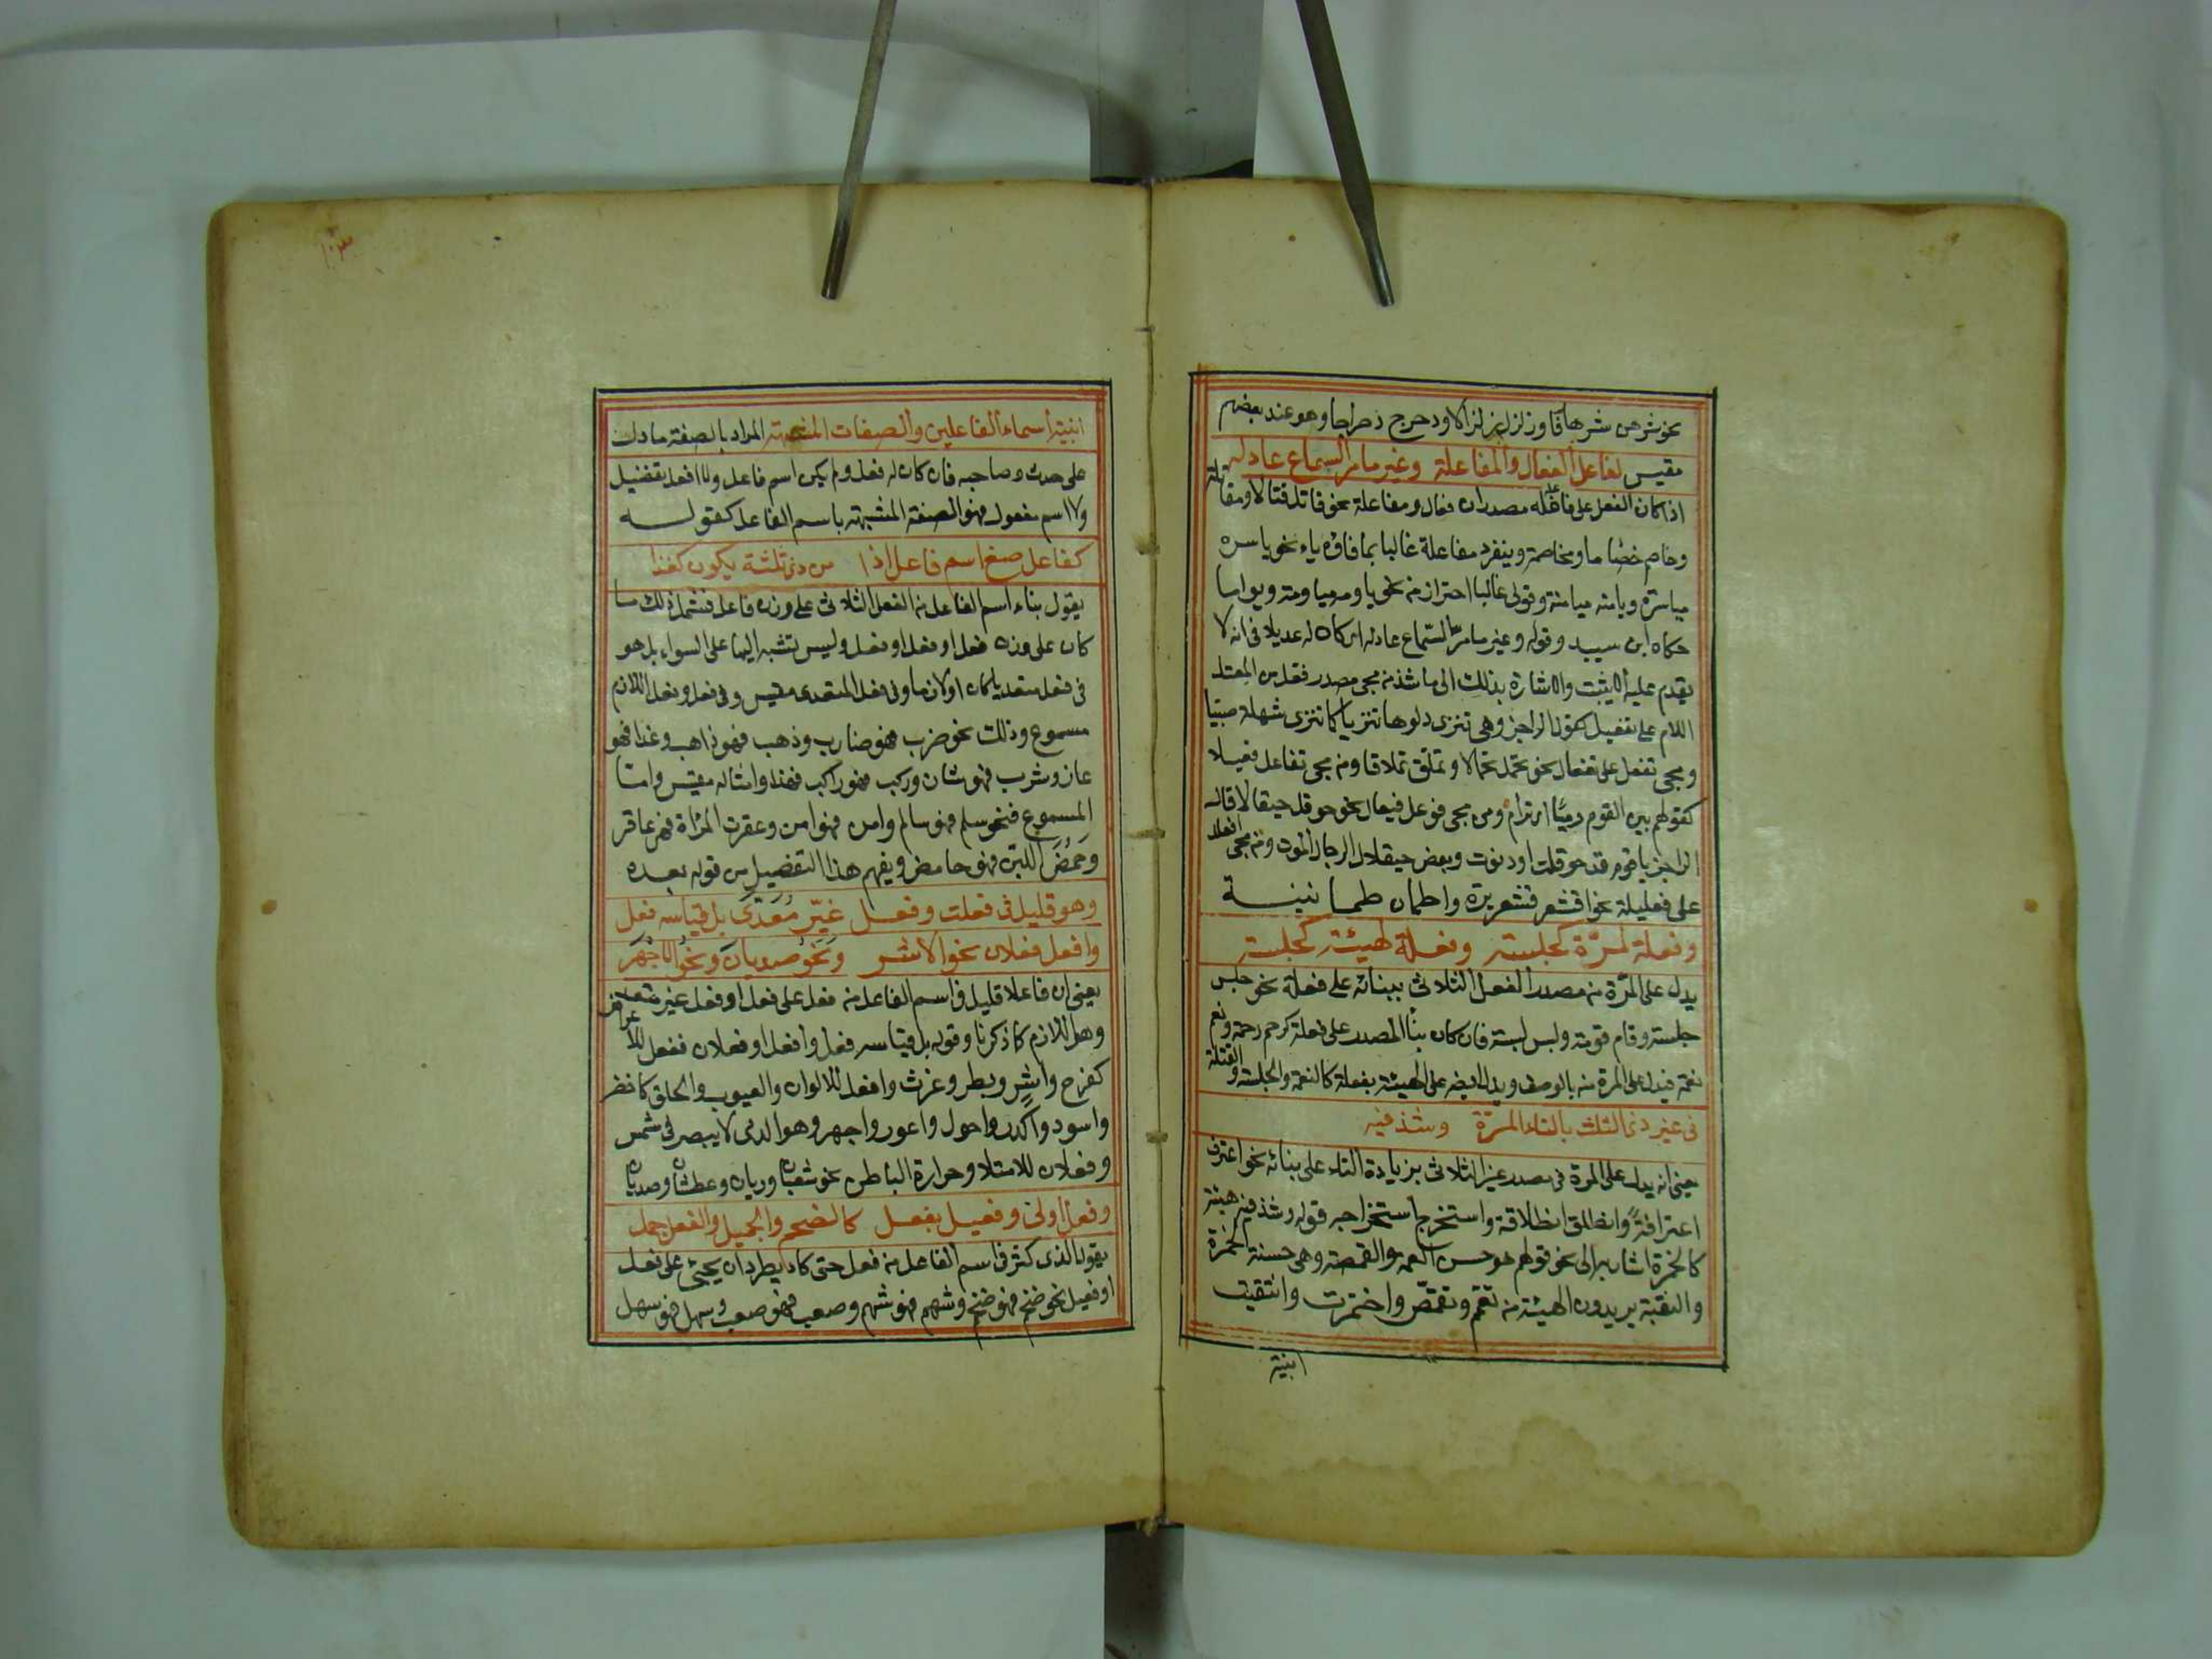 نحو شرهف شرهافا وزلزل زلزالا ودحرج دحراجا وهو عند بعضهم
مقيس لفاعل الفعال والمفاعلة وغير ما مر السماع عادله
اذا كان الفعل على فاعل فله مصدران فعال ومفاعلة نحو قاتل قتالا ومقاتلة
وخاصم خصاما ومخاصمة وينفرد مفاعلة غالبا بما فاؤه ياء نحو ياسره
مياسرة ويامنه ميامنة وقولى غالبا احترازا من نحو ياومه مياومة ويواما
حكاه ابن سيده وقوله وغير ما مر السماع عادله اى كان له عديلا فى انه لا
يقدم عليه الا بثبت والاشارة بذلك الى ما شذ من مجى مصدر فعل من المعتل
اللام على تفعيل كقول الراجز وهى تنزى دلوها تنزيا كما تنزى شهلة صبيا
ومجى تفعل على تفعال نحو تحمل تحمالا وتملق تملاقا ومن مجى تفاعل فعيلا
كقولهم بين القوم رميا اى ترام ومن مجى فوعل فيعال نحو حوقل حيقالا قال
الراجز يا قوم قد حوقلت او دنوت وبعض حيقال الرجال الموت ومن مجى افعلل
على فعليلة نحو اقشعر قشعريرة واطمان طمانينة
وفعلة لمرة كجلسة وفعلة لهيئة كجلسة
يدل على المرة من مصدر الفعل الثلاثى ببنائه على فعلة نحو جلس
جلسة وقام قومة ولبس لبسة فان كان بنا المصدر على فعلة كرحم رحمة ونعم
نعمة فيدل على المرة منه بالوصف ويدل ايضا على الهيئة بفعلة كالنعمة والجلسة والقتلة
فى غير ذى الثلث بالتاء المرة وشذ فيه
يعنى انه يدل على المرة فى مصدر غير الثلاثى بزيادة التاء على بنائه نحو اعترف
اعترافة وانطلق انطلاقة واستخرج استخراجه قوله وشذ فيه هيئة
كالخمرة اشار به الى نحو قولهم هو حسن العمة والقمصة وهى حسنة الخمرة
والنقبة يريدون الهيئة من تعمم وتقمص واختمرت وانتقبت
ابنية
ابنية اسماء الفاعلين والصفات المشبهة المراد بالصفة ما دل
على حدث وصاحبه فان كان له فعل ولم يكن اسم فاعل ولا افعل تفضيل
ولا اسم مفعول فهو الصفة المشبهة باسم الفاعل كقوله
كفاعل صغ اسم فاعل اذا من ذى ثلثة يكون كغذا
يقول بناء اسم الفاعل من الفعل الثلاثى على وزن فاعل فيشمل ذلك ما
كان على وزن فعل او فعل او فعل وليس نسبته اليها على السواء بل هو
فى فعل متعديا كان او لازما وفى فعل المتعدى مقيس وفى فعل وفعل اللازم
مسموع وذلك نحو ضرب فهو ضارب وذهب فهو ذاهب وغذا فهو
غاز وشرب فهو شارب وركب فهو راكب فهذا وامثاله مقيس واما
المسموع فنحو سلم فهو سالم وامن فهو امن وعقرت المرأة فهى عاقر
وحمض اللبن فهو حامض ويفهم هذا التفضيل من قوله بعده
وهو قليل فى فعلت وفعل غير معدى بل قياسه فعل
وافعل فعلان نحو الاشر ونحو صديان ونحو الاجهر
يعنى ان فاعلا قليل فى اسم الفاعل من فعل على فعل او فعل غير متعد
وهو اللازم كما ذكرنا وقوله بل قياسه فعل وافعل او فعلان ففعل للاعراض
كفرح واشر وبطر وغرث وافعل للالوان والعيوب والخلق كاخضر
واسود واكدر واحول واعور واجهر وهو الذى لا يبصر فى شمس
وفعلان للامتلا وحرارة الباطن نحو شعبان وريان وعطشان وصديان
وفعل اولى وفعيل بفعل كالضخم والجميل والفعل جمل
يقول الذى كثر فى اسم الفاعل من فعل حتى كاد يطرد ان يجئ على فعل
او فعيل نحو ضخم فهو ضخم وشهم فهو شهم وصعب فهو صعب وسهل فهو سهل